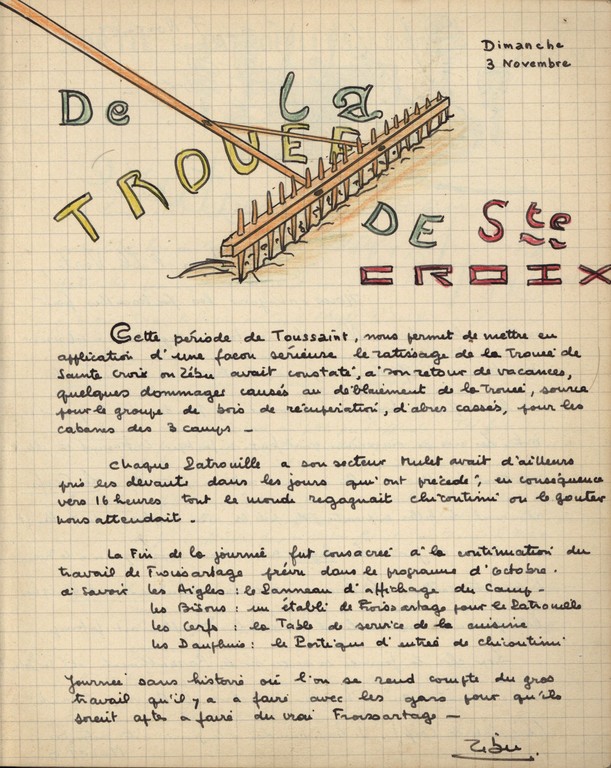 Dimanche
3 Novembre
De la
TROUEE
DE Ste
CROIX
Cette période de Toussaint, nous permet de mettre en
application d'une facon sérieuse le ratissage de la Trouée de
Sainte Croix ou Zébu avait constaté, a son retour de vacances,
quelques dommages causés au déblaiement de la Trouée, source
pour le groupe de bois de récupération, d'abres cassés, pour les
cabanes des 3 camps -
Chaque Patrouille a son secteur Mulet avait d'ailleurs
pris les devants dans les jours qui ont precédé, en conséquence
vers 16 heures tout le monde regagnait chicoutimi ou le gouter
nous attendait .
La Fin de la journée fut consacrée à la continuation du
travail de Froissartage prévu dans le programe d'Octobre .
a savoir les Aigles : le Panneau d'affichage du Camp -
les Bisons : un établi de Froissartage pour la Patrouille
les Cerfs : la Table de service de la cuisine
les Dauphins : le Portique d'entrée de chicoutimi
Journée sans histoire où l'on se rend compte du gros
travail qu'il y a a faire avec les gars pour qu'ils
soient aptes a faire du vrai Froissartage -
Zébu.